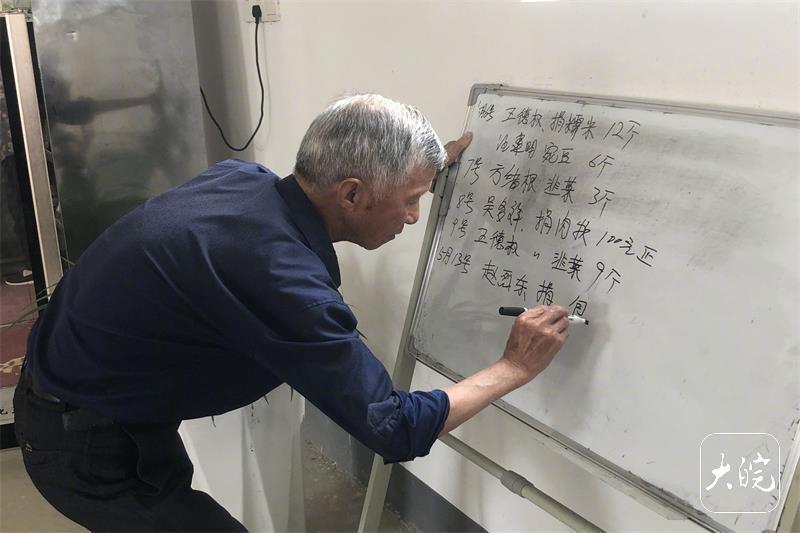 6号 王德权、捐糯米 12斤
明 豌豆 6斤
7号 方绪根 韭菜 3斤
8号 吴多祥、捐肉款 100元正
9号 王德权 〃 韭菜 9斤
5月13号 赵烈东 捐 包
大皖